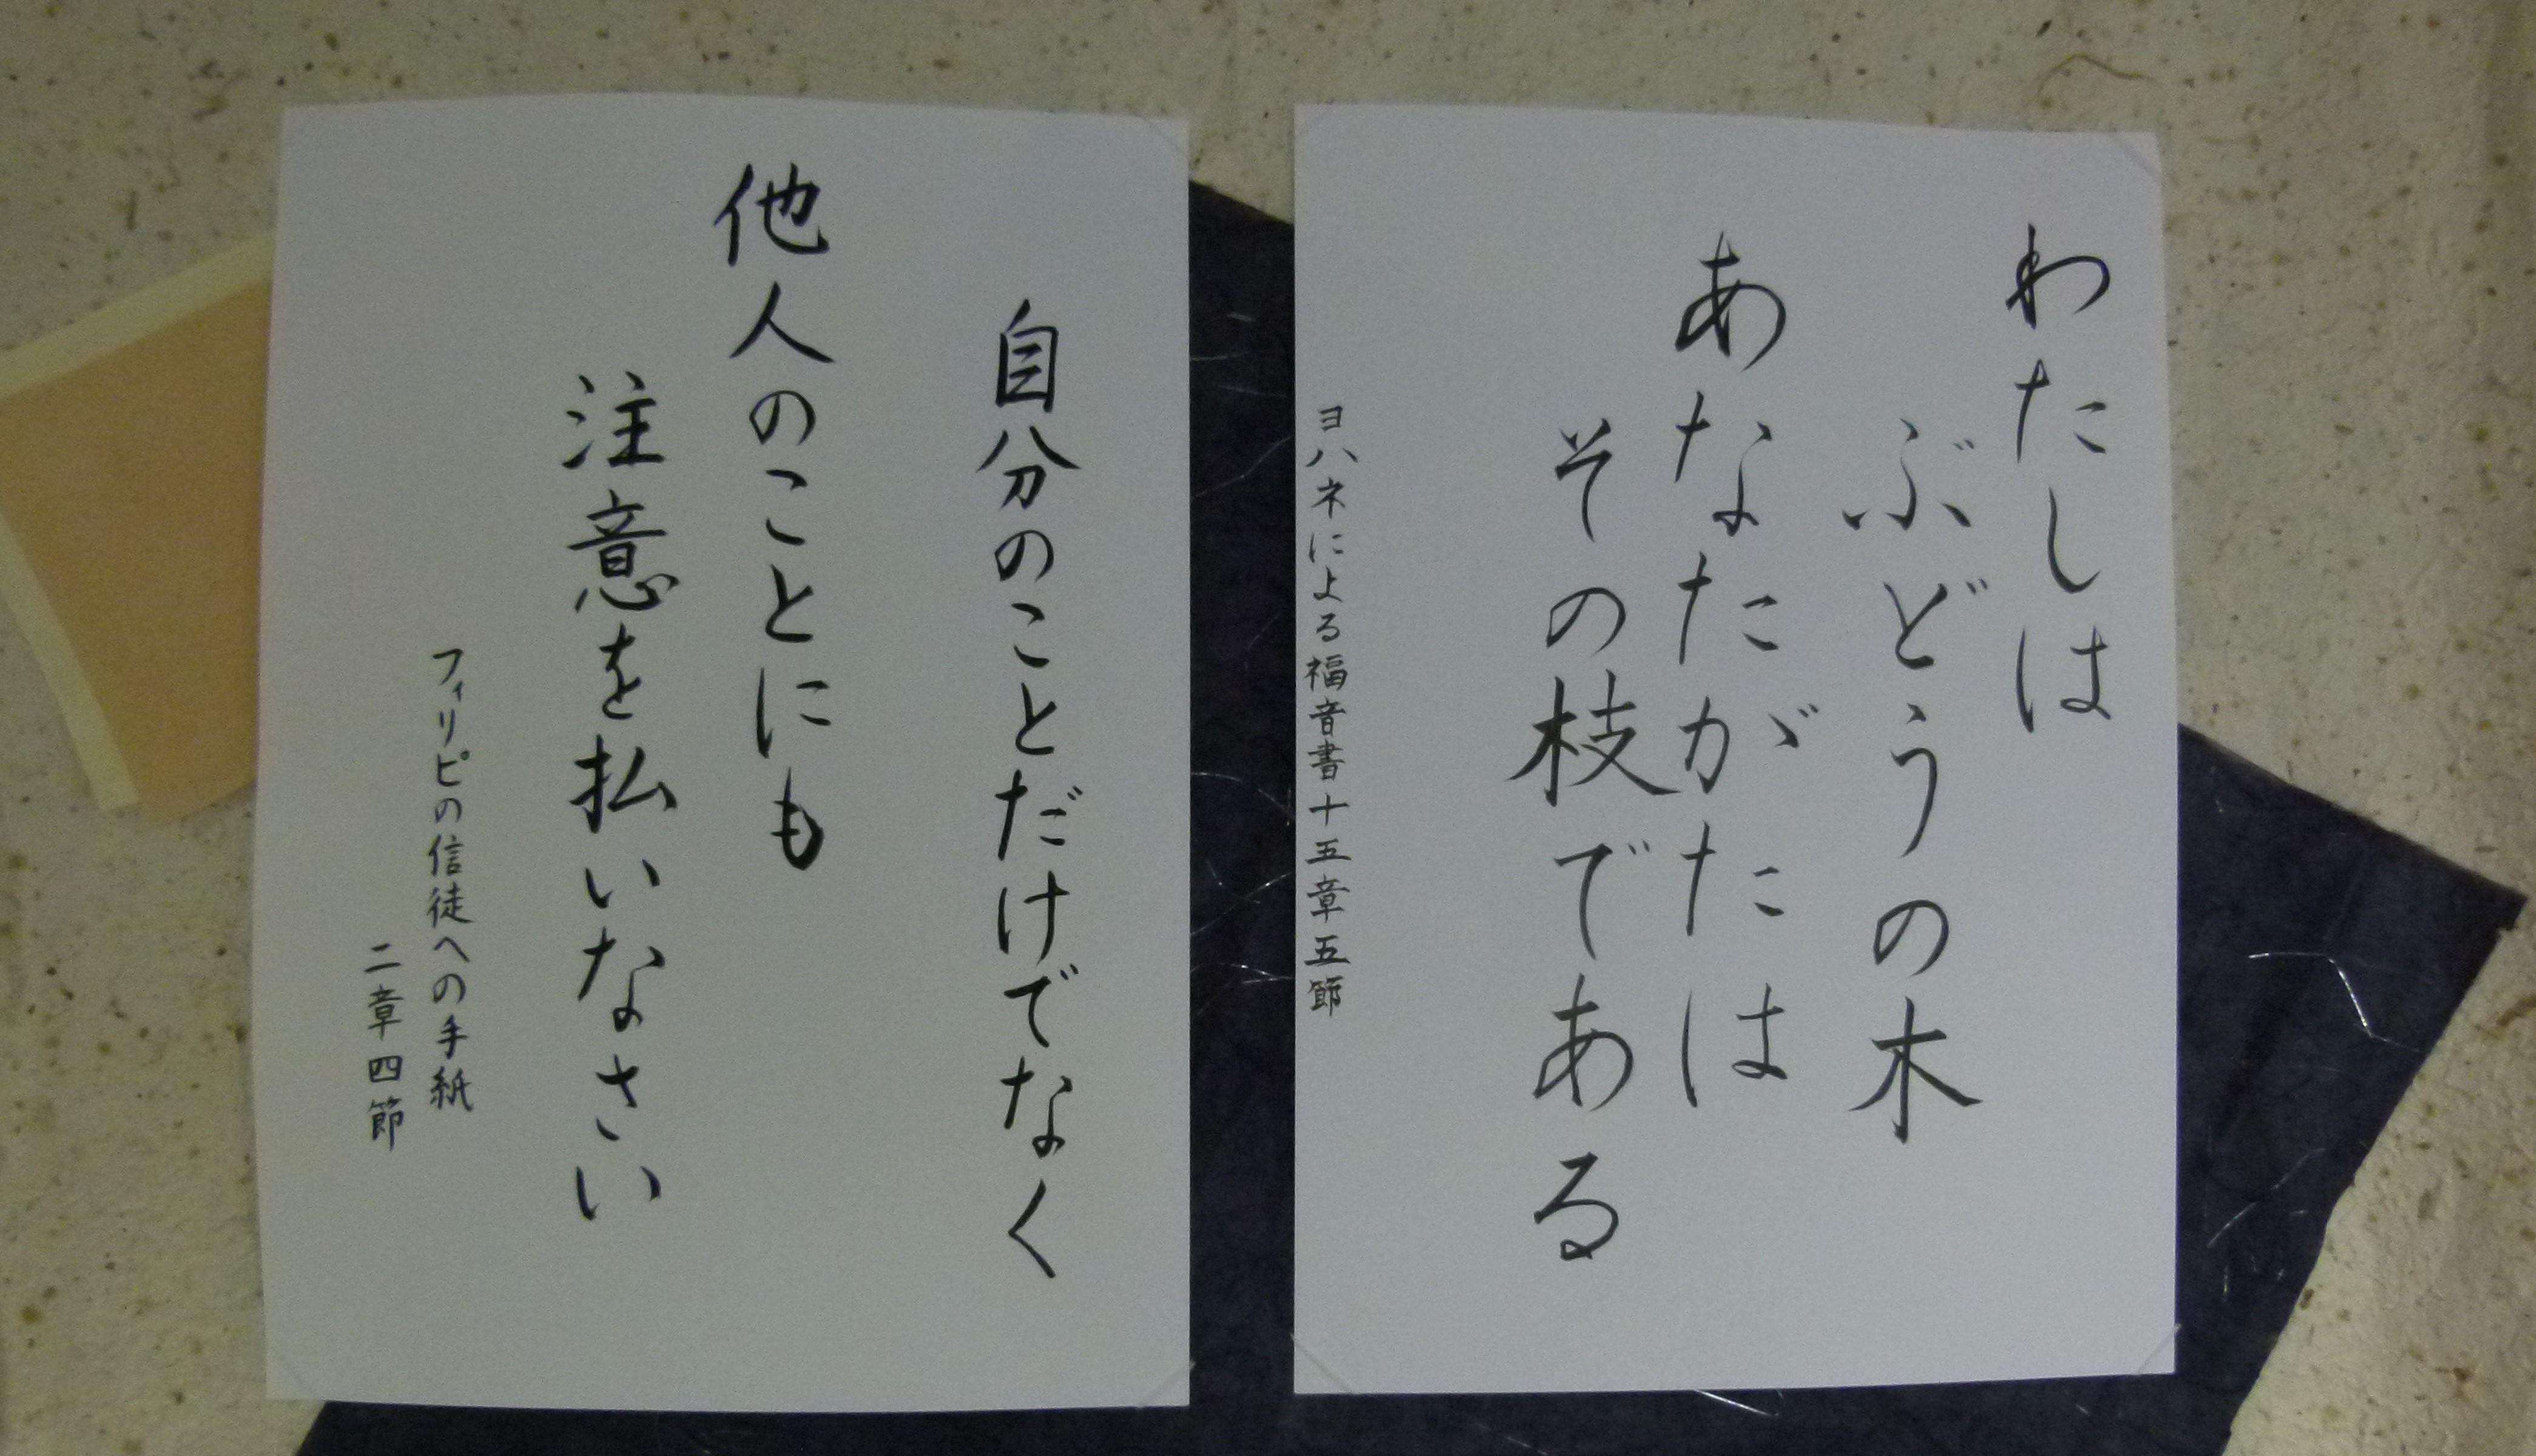 わたしは
ぶどうの木
あなたがたは
その枝である
ヨハネによる福音書十五章五節
自分のことだけでなく
他人のことにも
注意を払いなさい
フィリピの信徒への手紙
二章四節